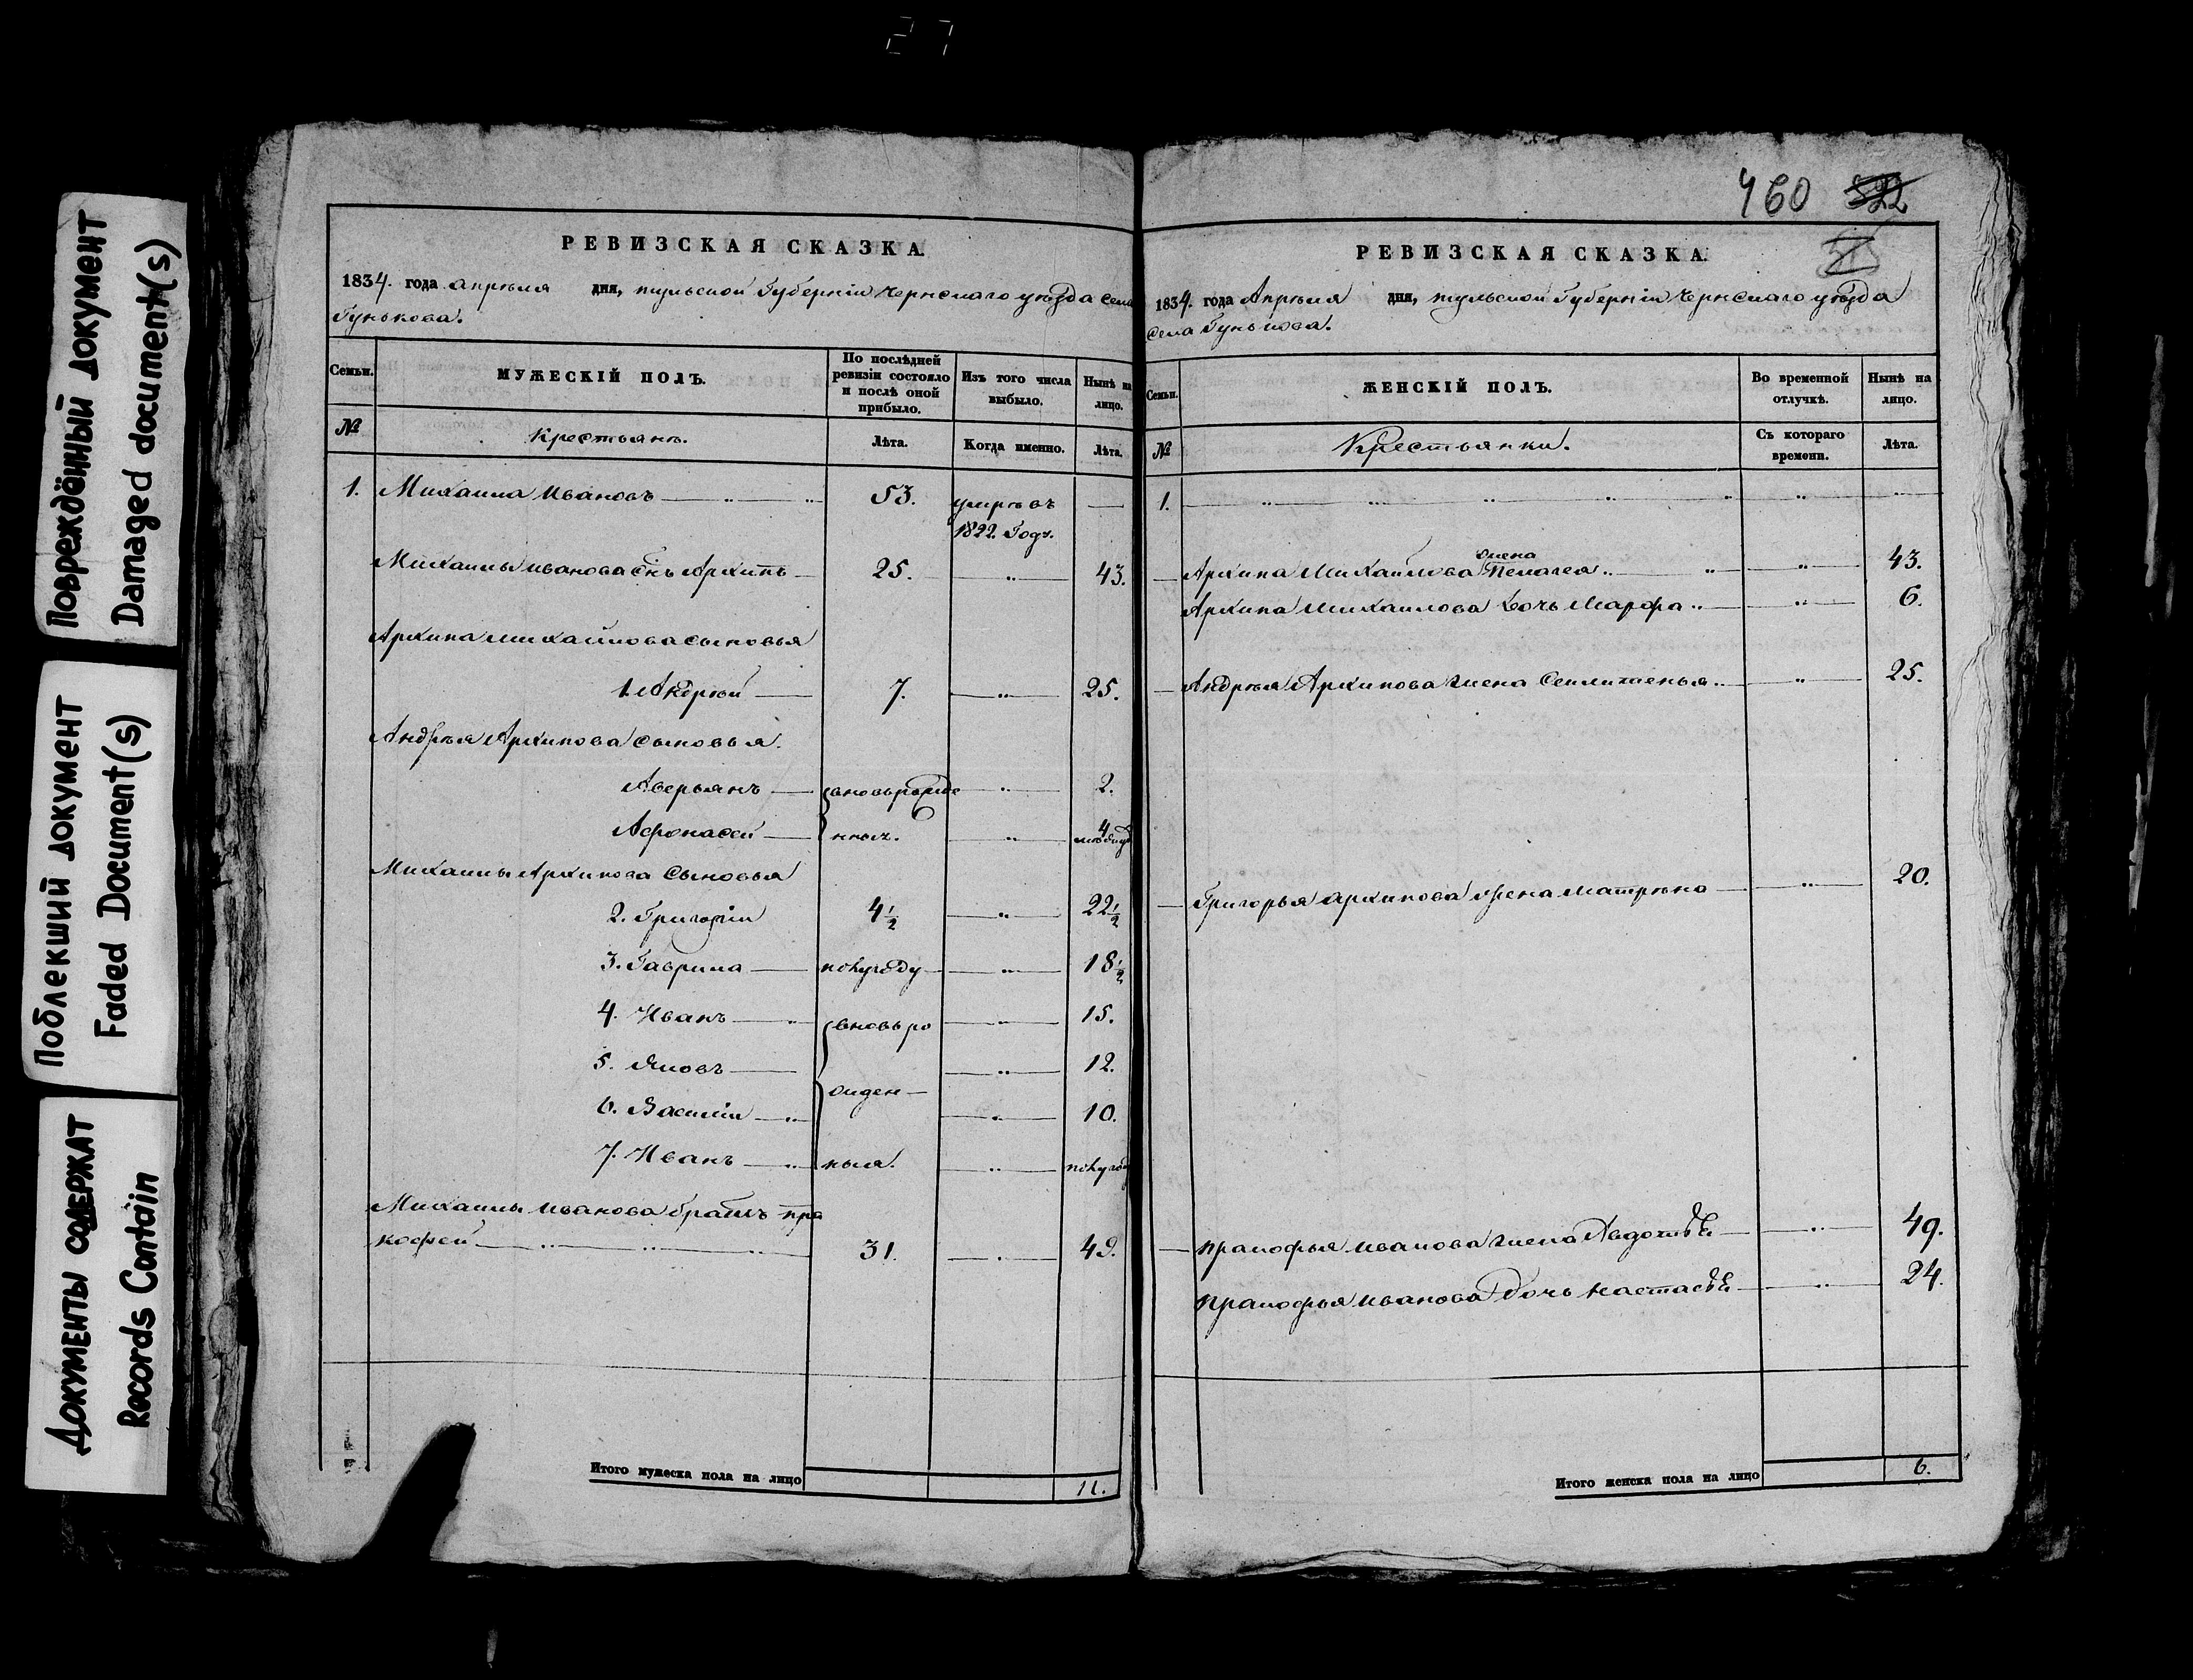 27
Повреждённый документ
Damaged document(s)
Поблекший документ
Faded Document(s)
Документы содержат
Records Contain
РЕВИЗСКАЯ СКАЗКА.
1834. года апреля дня, тульской Губернiи чернскаго уѣзда села
Гунькова.
Семьи. МУЖЕСКIЙ ПОЛЪ. По послѣдней ревизiи состояло и послѣ оной прибыло. Изъ того числа выбыло. Нынѣ на лицо.
№ Крестьянъ. Лѣта. Когда именно. Лѣта.
1. Михаила Ивановъ 53. умрѣ въ
1822. Годѣ.
Михаилы иванова Сынъ Архипъ 25. 43.
Архипа михайлова сыновья
1 Андрѣй 7. 25.
Андрѣя Архипова сыновья.
Аверьянъ вновь рожде 2.
Афонасей нныхъ. 4
Михаилы Архипова Сыновья
2. Григорiи 4 1/2 22 1/2
3. Гаврила полугоду 18 1/2
4. Иванъ вновь ро 15.
5. Яковъ 12.
жден
6. Василiи 10.
7. Иванъ ныя. полугоду
Михаилы иванова братъ про
кофей 31. 49.
Итого мужеска пола на лицо 11.
460 522
РЕВИЗСКАЯ СКАЗКА.
1834. года Апрѣля дня, тульской Губернiи чернскаго уѣзда
села Гунькова.
Семьи. ЖЕНСКIЙ ПОЛЪ. Во временной отлучкѣ. Нынѣ на лицо.
№ Крестьянки. Съ котораго времени. Лѣта.
1.
жена
Архипа Михайлова Пелагея 43.
Архипа Михаилова Дочь Марфа 6.
Андрѣя Архипова жена 25.
Григорья архипова жена матрѣна 20.
прокофья иванова жена Авдотья 49.
прокофья иванова Дочь настасья 24.
Итого женска пола на лицо 6.